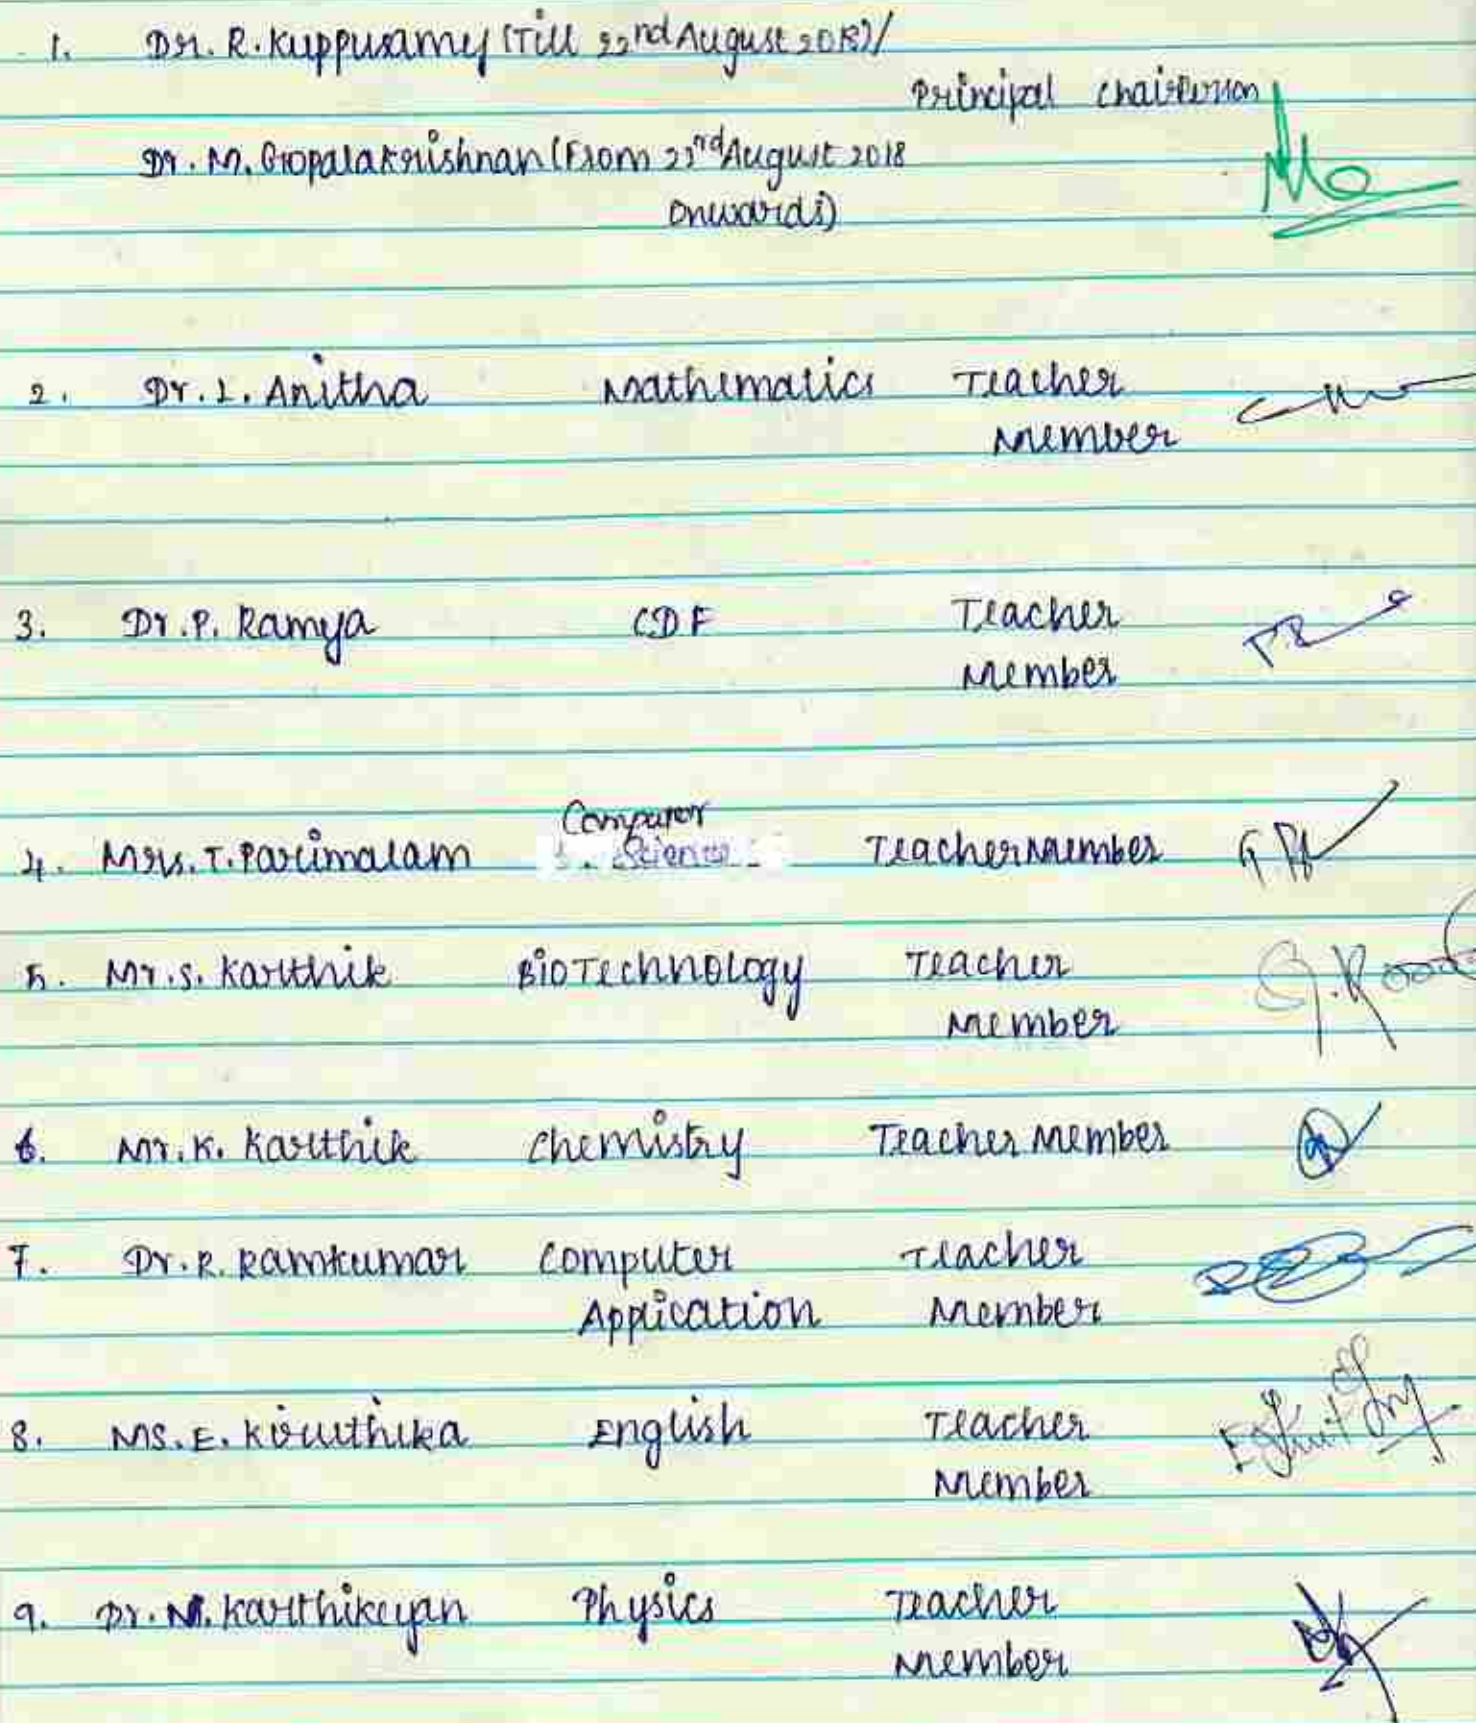 1. Dr. R. Kuppusamy (Till 22nd August 2018)/
Principal Chairperson
Dr. M. Gopalakrishnan (From 22nd August 2018
onwards)
2. Dr. L. Anitha Mathematics Teacher
Member
3. Dr. P. Ramya CDF Teacher
Member
Computer
4. Mrs. T. Parimalam Science Teacher Member
5. Mr. S. Karthik BioTechnology Teacher
Member
6. Mr. K. Karthik Chemistry Teacher Member
7. Dr. R. Ramkumar Computer Teacher
Application Member
8. Ms. E. Kiruthika English Teacher
Member
9. Dr. M. Karthikeyan Physics Teacher
Member